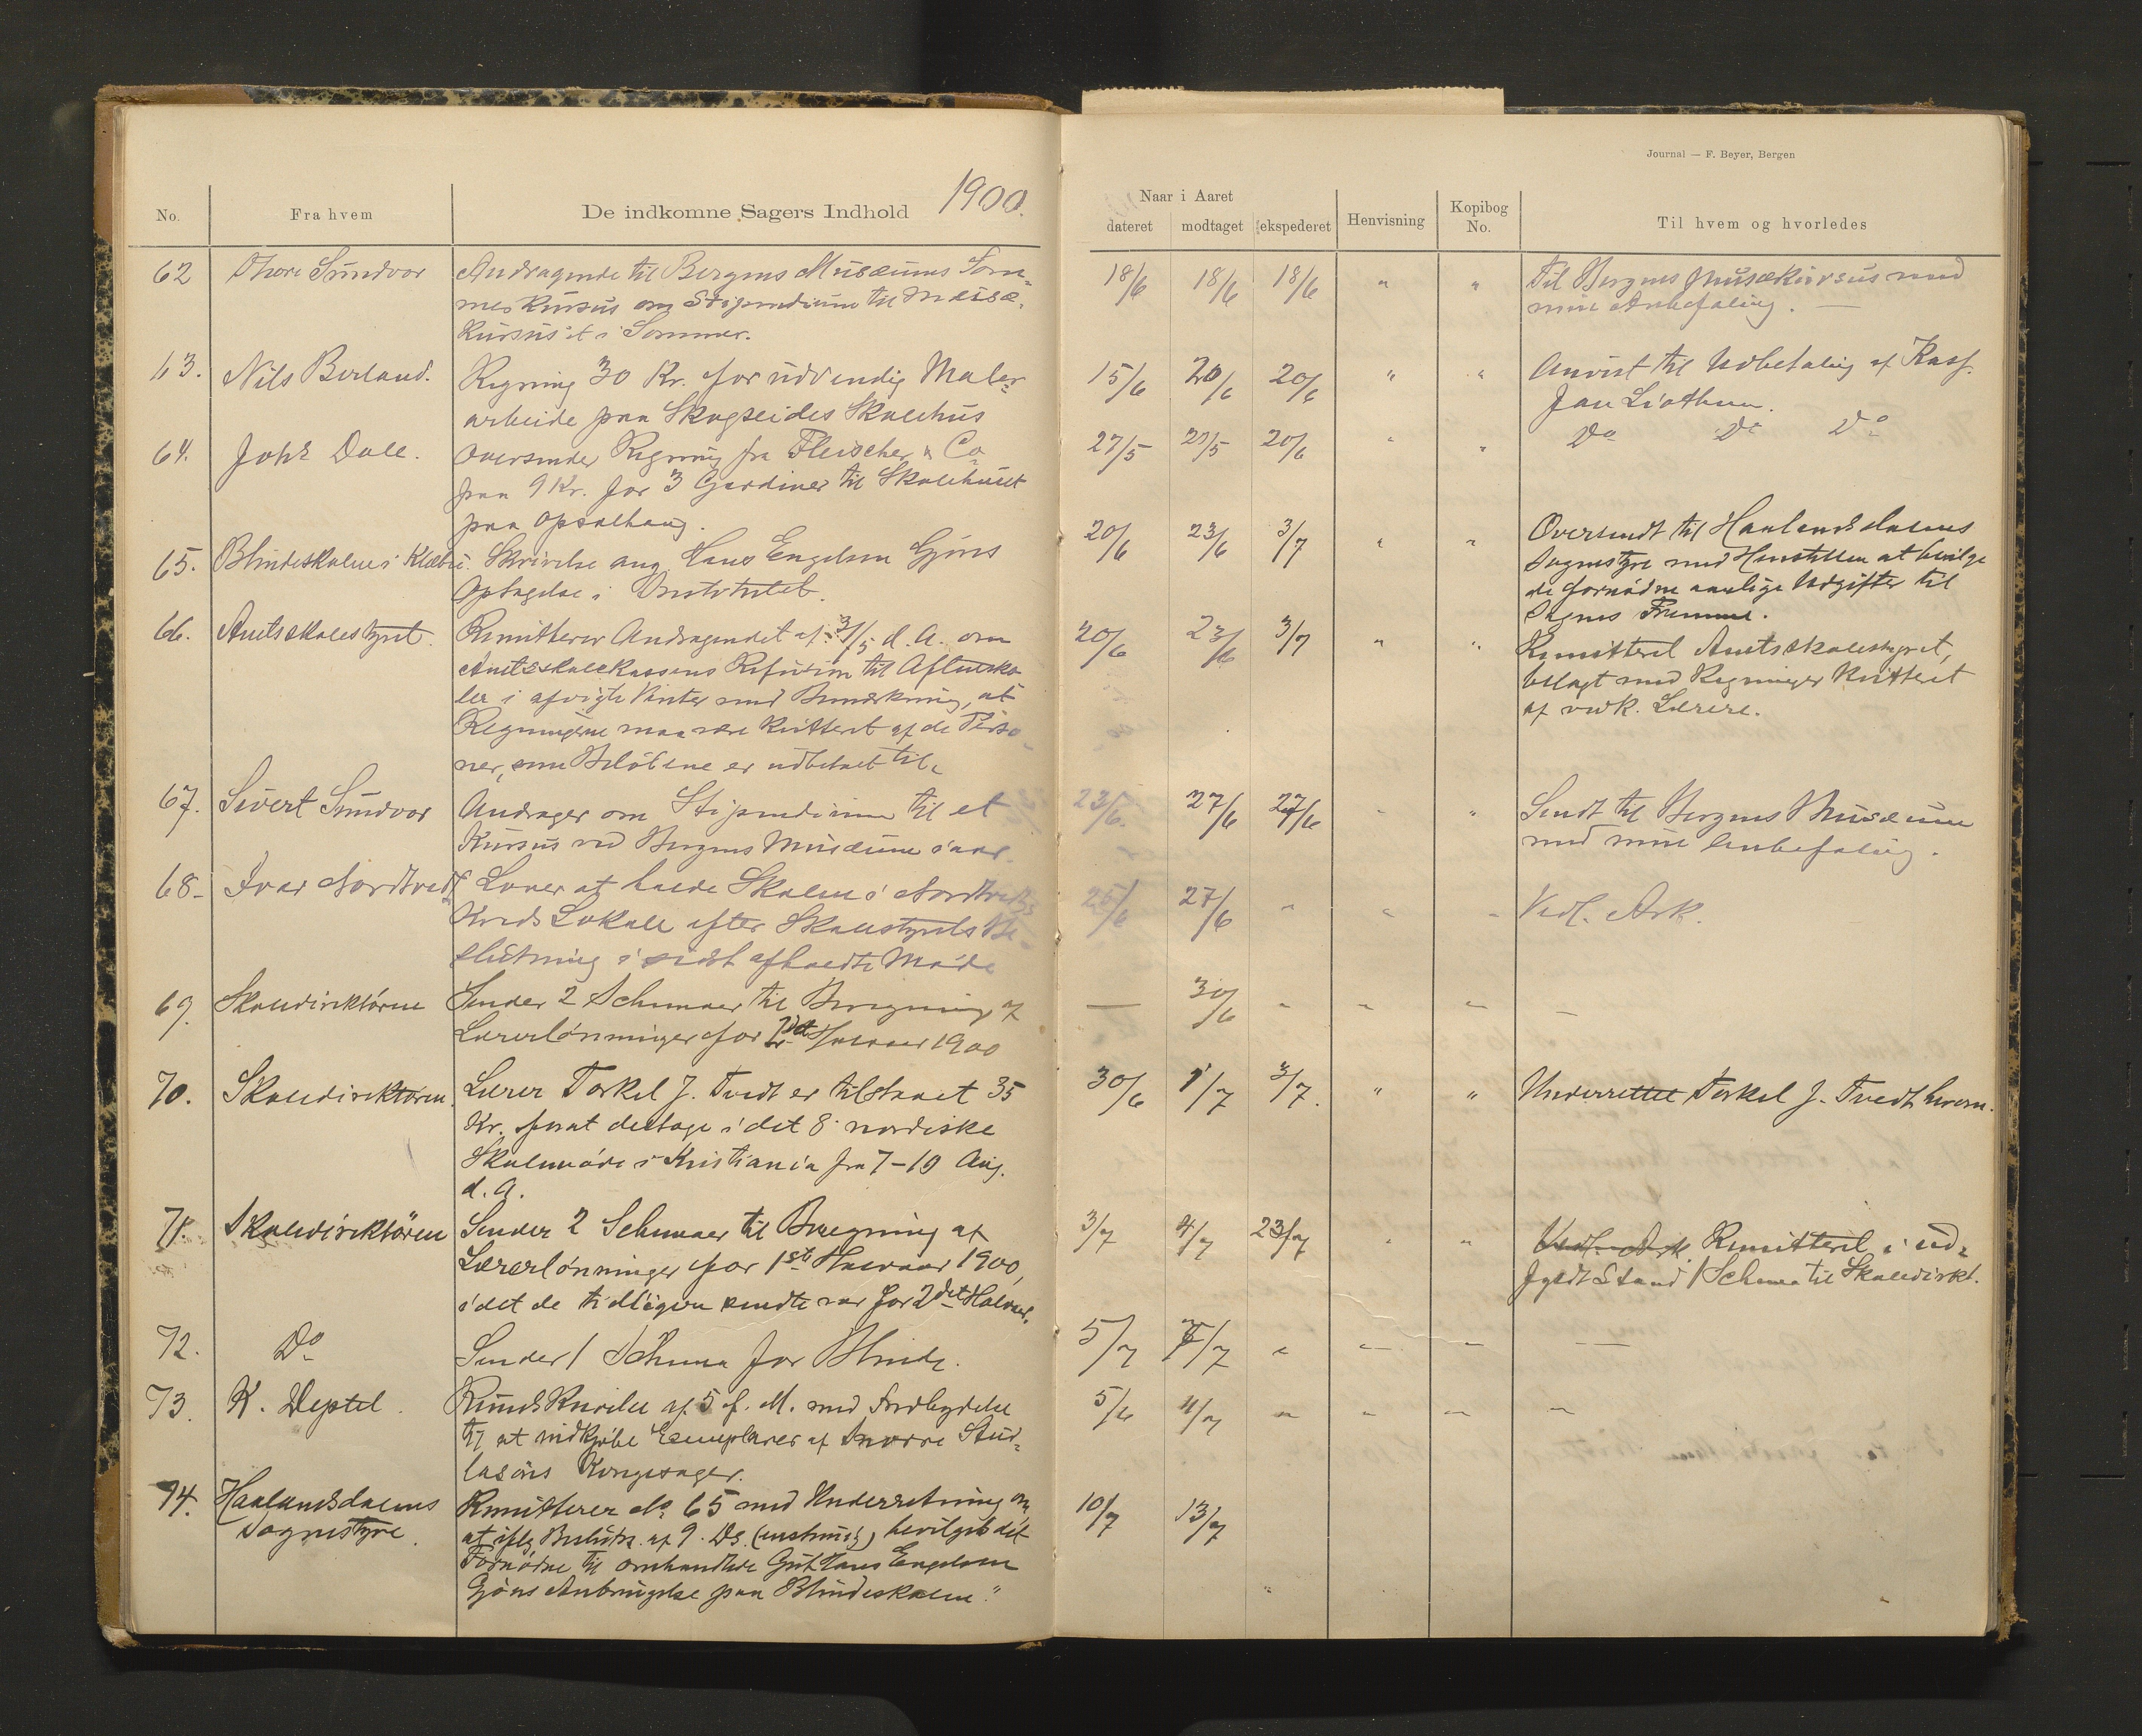 Journal — F. Beyer, Bergen
1900.
No.
Fra hvem
De indkomne Sagers Indhold
Naar i Aaret
dateret
modtaget
ekspederet
Henvisning
Kopibog
No.
Til hvem og hvorledes
62 Thore Sundvor Andragende til Bergens Musæums Som-
merkursus om Stipendium til Musæ-
Kursus i Sommer.
18/6 18/6 18/6 " " Til Bergens Musækursus med
min Anbefaling.
63. Nils Berland. Regning 30 Kr. for udvendig Maler
arbeide paa Skogseides Skolehus
15/6 20/6 20/6 " " Anvist til Udbetaling af Kasf.
Jan Liothun.
64. Dale. Oversender Regning fra Fleischer & Co
paa 9 Kr. for 3 Gardiner til Skolehuset
paa Opsalhaug.
27/5 20/6 " " Do Do Do
65. Blindeskolen i Klæbu. Skrivelse ang. Hans Engelsen Gjøns
Optagelse i Institutet.
20/6 23/6 3/7 " " Oversendt til Haalandsdalens
Sognestyre med Henstillen at bevilge
de fornødne aarlige Udgifter til
Sagens Fremme.
66. Amtsskolestyret. Remitterer Andragendet af d. A. om
Amtsskolekassens Refusion til Aftensko-
ler i afvigte Vinter med Bemærkning, at
Regningerne maa være kvitteret af de Perso-
ner, som Beløbene er udbetalt til.
20/6 23/6 3/7 " " Remitteret Amtsskolestyret,
belagt med Regninger kvitteret
af vedk. Lærere.
67. Sivert Sundvor Andrager om Stipendium til et
Kursus ved Bergens Musæum iaar.
23/6. 27/6 27/6 " " Sendt til Bergens Musæum
med min Anbefaling.
68. Ivar Nordtvedt Lover at holde Skolen i Nordtvedts
Kreds Lokale efter Skolestyrets Be-
slutning i sidst afholdte Møde
25/6 27/6 " " " Vedl. Ark.
69. Skoledirektøren Sender 2 Schemaer til Beregning af
Lærerlønninger for Halvaar 1900
— 30/6 " " " —
70. Skoledirektøren. Lærer Torkel J. Tvedt er tilstaaet 35
Kr. for at deltage i det 8. nordiske
Skolemøde i Kristiania fra 7-10 Aug.
d. A.
30/6 1/7 3/7. " " Underrettet Torkel J. Tvedt herom.
71. Skoledirektøren Sender 2 Schemaer til Beregning af
Lærerlønninger for 1ste Halvaar 1900,
idet de tidligere sendte var for 2det Halvaar.
3/7 4/7 23/7 " " Vedl. Ark Remitteret i ud-
fyldt Stand 1 Schema til Skoledirkt.
72. Do Sender 1 Schema for Blinde.
5/7 7/7 " — — —
73. K. Deptet. Rundskrivelse af 5 f. M. med Indbydelse
til at indkjøbe Exemplarer af Snorre Stur-
lasöns Kongesager.
5/6 4/7 " " — —
74. Haalandsdalens
Sognestyre.
Remitterer No 65 med Underretning om,
at iflg. Beslutn. af 9. Ds. bevilget det
Fornødne til omhandlede Gut Hans Engelsen
Gjøns Anbringelse paa Blindeskolen."
10/7 13/7